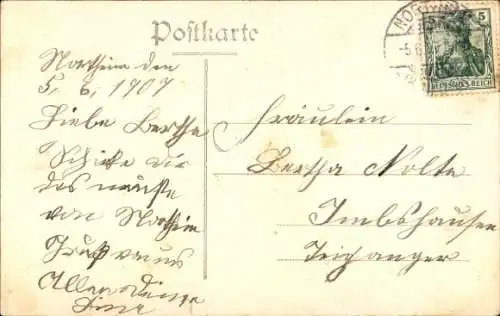 Postkarte
NORTHEIM
5
DEUTSCHES REICH
Northeim den
5. 6. 1907
Liebe Bertha
Schicke dir
das neuste
von Northeim
Gruß von uns
Allen Deine
Fräulein
Bertha Nolte
Imbshausen